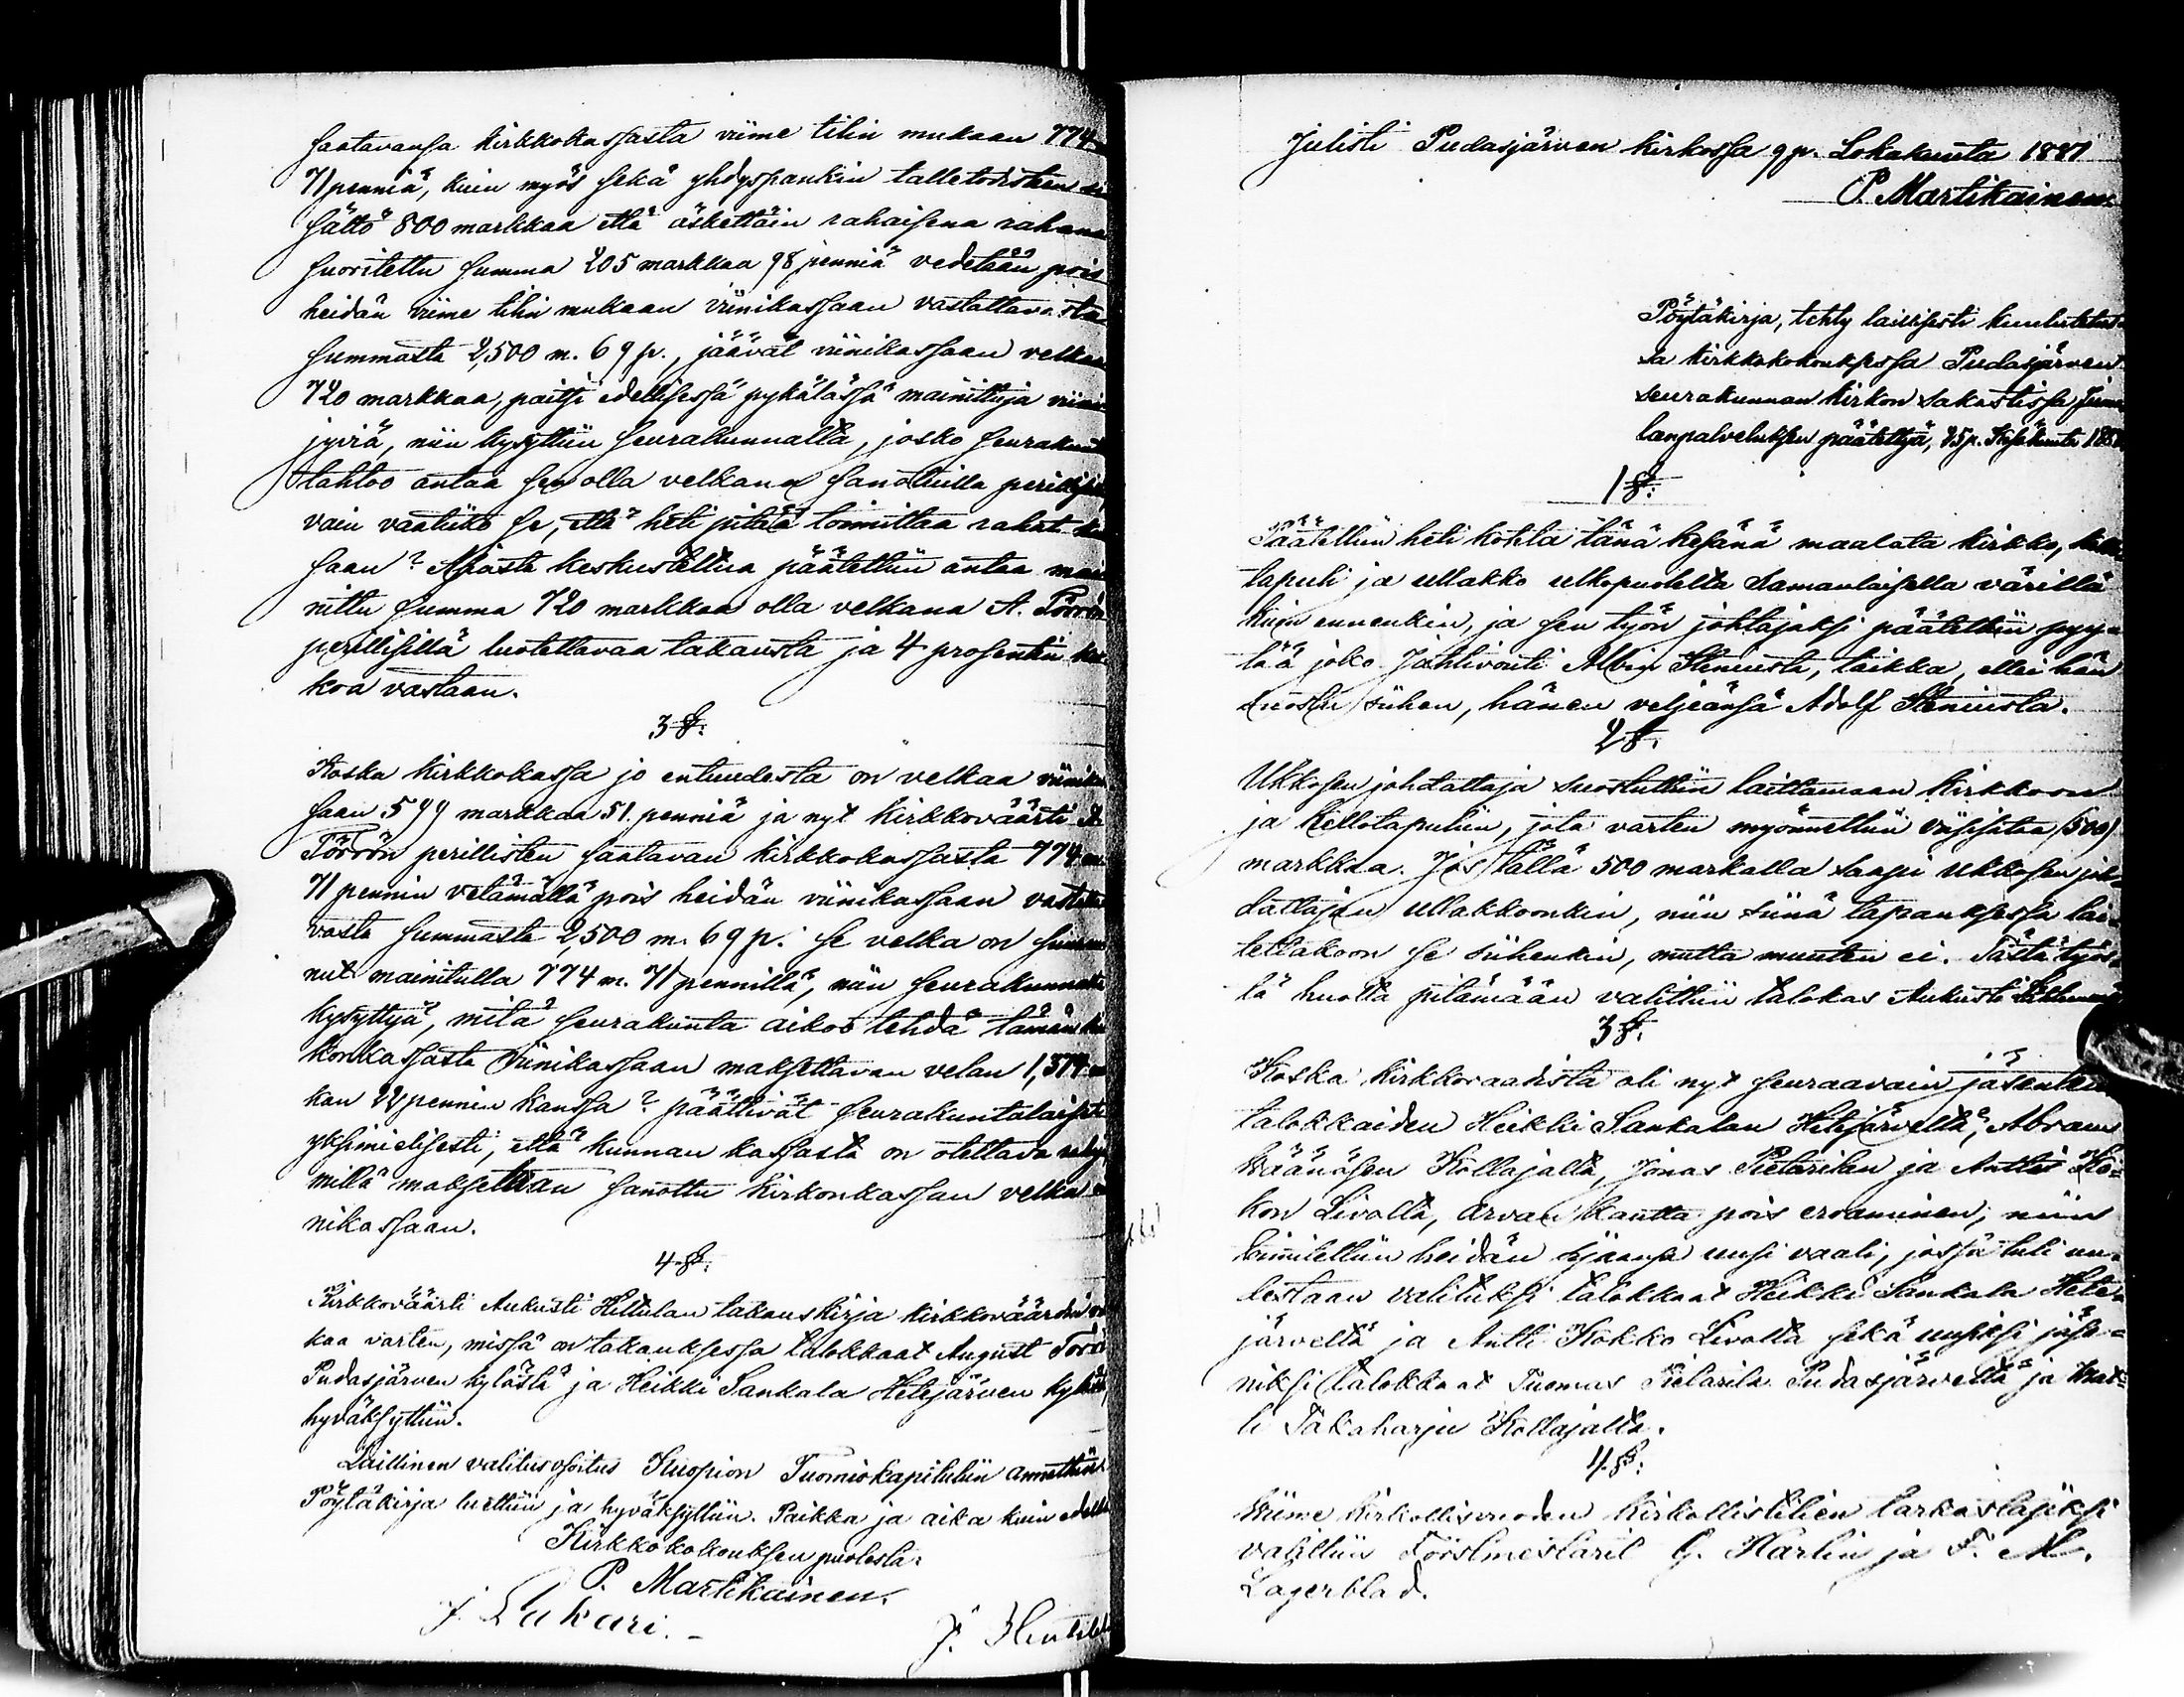 saatavansa kirkkokassasta viime tilin mukaan 774
71 penniä, kuin myös sekä yhdyspankin talletodisteen
sättö 800 markkaa että äskettäin rahaisena rahana
suoritettu summa 205 markkaa 98 penniä vedetään pois
heidän viime tilin mukaan viinikassaan vastattavasta
summasta 2,500 m. 69 p., jäävät viinikassaan velkaa
720 markkaa, paitsi edellisessä pykälässä mainittuja viini
jyviä, niin kysyttiin seurakunnalta, josko seurakunta
tahtoo antaa sen olla velkana sanotuilla perillisillä
vain vaatiiko se, että heti pitää toimittaa rahat
saan? Asiasta keskusteltua päätettiin antaa mai
nittu summa 720 markkaa olla velkana A. Törrön
perillisillä luotettavaa takausta ja 4 prosentin kor
koa vastaan.
3 §:
Koska kirkkokassa jo entuudesta on velkaa viinikas
saan 599 markkaa 51 penniä ja nyt kirkkoväärti A.
Törrön perillisten saatavan kirkkokassasta 774
71 pennin vetämällä pois heidän viinikassaan vastatta
vasta summasta 2,500 m. 69 p. se velka on suuren
nut mainitulla 774 m. 71 pennillä, niin seurakunnalta
kysyttyä, mitä seurakunta aikoo tehdä tämän kir
konkassasta viinikassaan maksettavan velan 1,374
kan 22 pennin kanssa? päättivät seurakuntalaiset
yksimielisesti, että kunnan kassasta on otettava
millä maksetaan sanottu kirkonkassan velka
nikassaan.
4 §:
Kirkkoväärti Aukusti Hiltulan takauskirja kirkkoväärdin
kaa varten, missä on takauksessa talokkaat August Törrö
Pudasjärven kylästä ja Heikki Sankala Hetejärven kylästä,
hyväksyttiin.
Laillinen valitusosoitus Kuopion Tuomiokapituliin annettiin
Pöytäkirja luettiin ja hyväksyttiin. Paikka ja aika kuin edellä
Kirkkokokouksen puolesta:
P. Martikainen.
J. Lakari.
J.
Julisti Pudasjärven kirkossa 9 p. Lokakuuta 1881
P. Martikainen.
Pöytäkirja, tehty laillisesti kuulutetus
sa kirkkokokouksessa Pudasjärven
seurakunnan kirkon sakastissa Juma
lanpalveluksen päätettyä, 25 p. Kesäkuuta
1 §:
Päätettiin heti kohta tänä kesänä maalata kirkko, kello
tapuli ja ullakko ulkopuolelta samanlaisella värillä
kuin ennenkin, ja sen työn johtajaksi päätettiin pyy-
tää joko Jahtivouti Albin Steniusta, taikka, ellei hän
suostu siihen, hänen veljeänsä Adolf Steniusta.
2 §.
Ukkosen johdattaja suostuttiin laittamaan kirkkoon
ja kellotapuliin, jota varten myönnettiin viisisataa (500)
markkaa. Jos tällä 500 markalla saapi ukkosen joh-
dattajan ullakkoonkin, niin siinä tapauksessa lai-
tettakoon se siihenkin, mutta muuten ei. Tästä työs-
tä huolta pitämään valittiin talokas Aukusti
3 §:
Koska kirkkoraadista oli nyt seuraavain jäsenten
talokkaiden Heikki Sankalan Hetejärveltä, Abram
Wäänäsen Kollajalta, Jonas Pietarilan ja Antti Ko-
kon Livolta, arvan kautta pois eroaminen, niin
toimitettiin heidän sijaansa uusi vaali, jossa tuli uu-
destaan valituksi talokkaat Heikki Sankala Hete-
järveltä ja Antti Kokko Livolta sekä uusiksi jäse-
niksi talokkaat Tuomas Pietarila Pudasjärveltä ja Mat-
ti Takaharju Kollajalta.
4 §:
Wiime kirkollisvuoden kirkollistilien tarkastajiksi
valittiin Förstmestarit G. Harlin ja F. M.
Lagerblad.